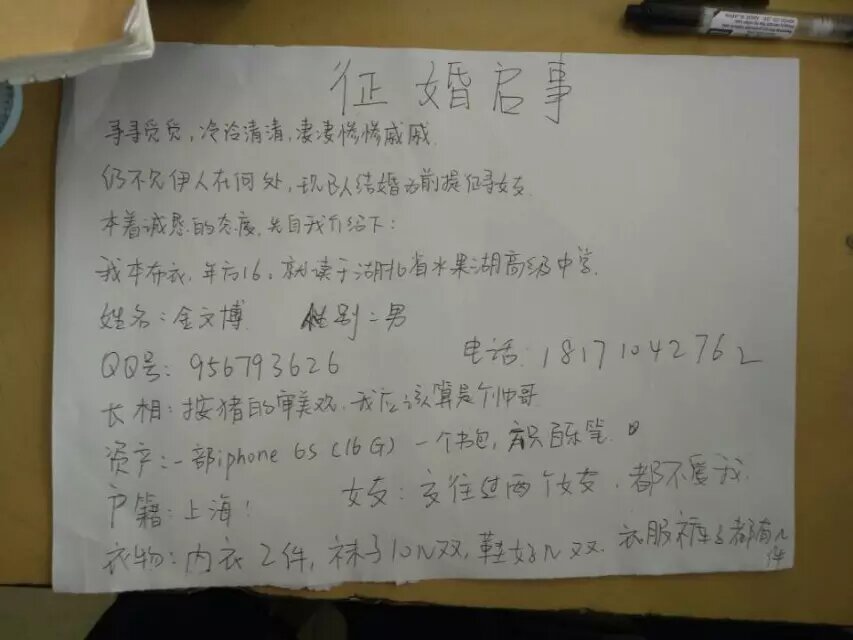 征婚启事
寻寻觅觅，冷冷清清，凄凄惨惨戚戚
仍不见伊人在何处，现已以结婚为前提征寻女友
本着诚恳的态度，先自我介绍下：
我本布衣，年方16。就读于湖北省水果湖高级中学。
姓名：金文博 性别：男
QQ号：956793626 电话：18171042762
长相：按猪的审美观，我应该算是个帅哥
资产：一部iphone 6s (16G) 一个书包，百乐笔。
户籍：上海！ 女友：交往过两个女友，都不爱我。
衣物：内衣2件，袜子10N双，鞋好N双。衣服裤子都有N件